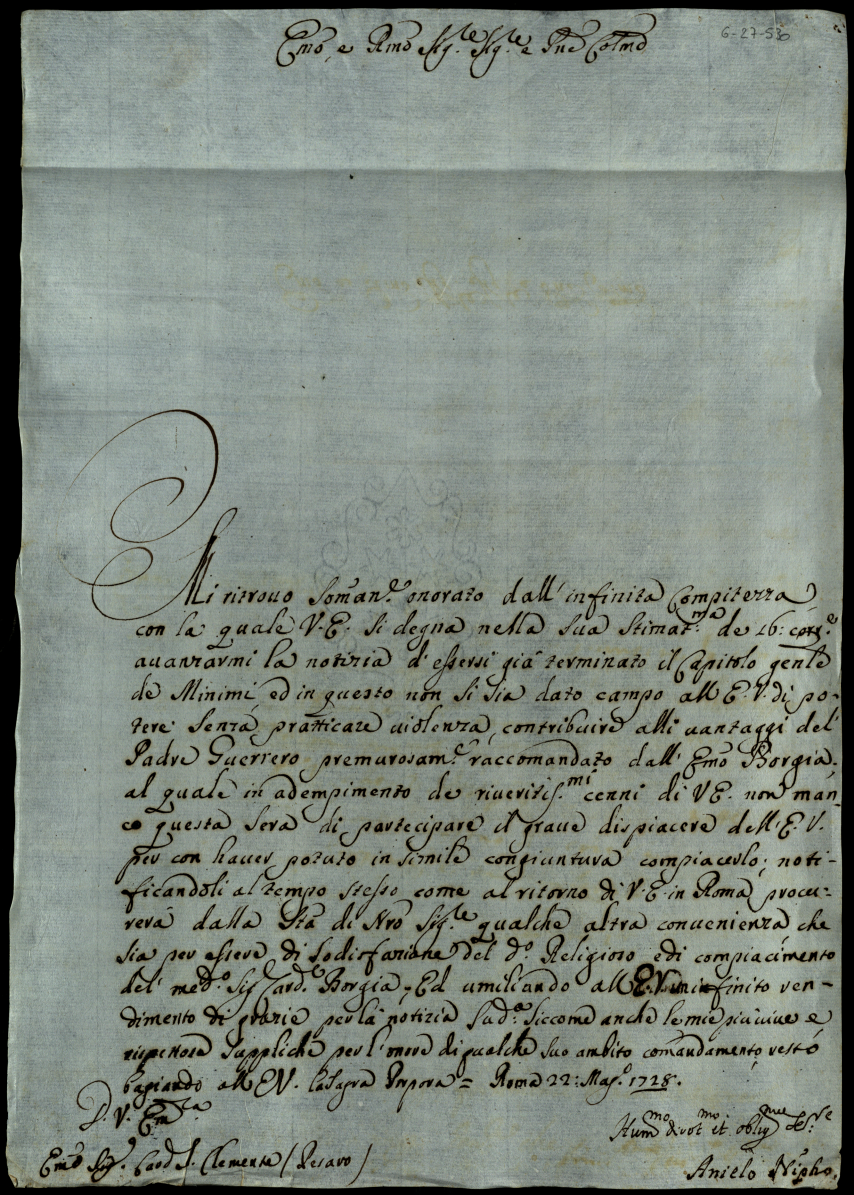 6-27-530
Emo, e Rmo Sig.re Sig.re e Pne Colmo
Mi ritrovo Soman.te onorato dall' infinita Compitezza
con la quale V. E. si degna nella sua Stimat.ma de 16: corr.e
avanzarmi la notizia d'essersi già terminato il Capitolo genle
de Minimi, ed in questo non si sia dato campo all E. V. di po-
tere senza pratticare violenza, contribuire alli vantaggi del
Padre Guerrero premurosam.te raccomandato dall' Emo Borgia,
al quale in adempimento de riveritis.mi cenni di V E. non man
co questa sera di partecipare il grave dispiacere dell E. V.
per non haver potuto in simile congiuntura compiacerlo; noti-
ficandoli al tempo stesso come al ritorno di V. E in Roma procu-
rerà dalla Sta di Nro Sig.re qualche altra convenienza che
sia per essere di sodisfazione del d.o Religioso e di compiacimento
del med.o Sig Card.e Borgia, Ed umiliando all E. V. un infinito ren-
dimento di grazie per la notizia sud.a siccome anche le mie più vive e
rispettose suppliche per l'onore di qualche suo ambito comandamento, resto
baciando all EV. la Sagra Porpora = Roma 22: Mag.o 1728.
D. V. Em.za
Hum.mo divot.mo et oblig.mo Se.re
Emo Sig.r Card S. Clemente (Pesaro)
Aniello Nipho.